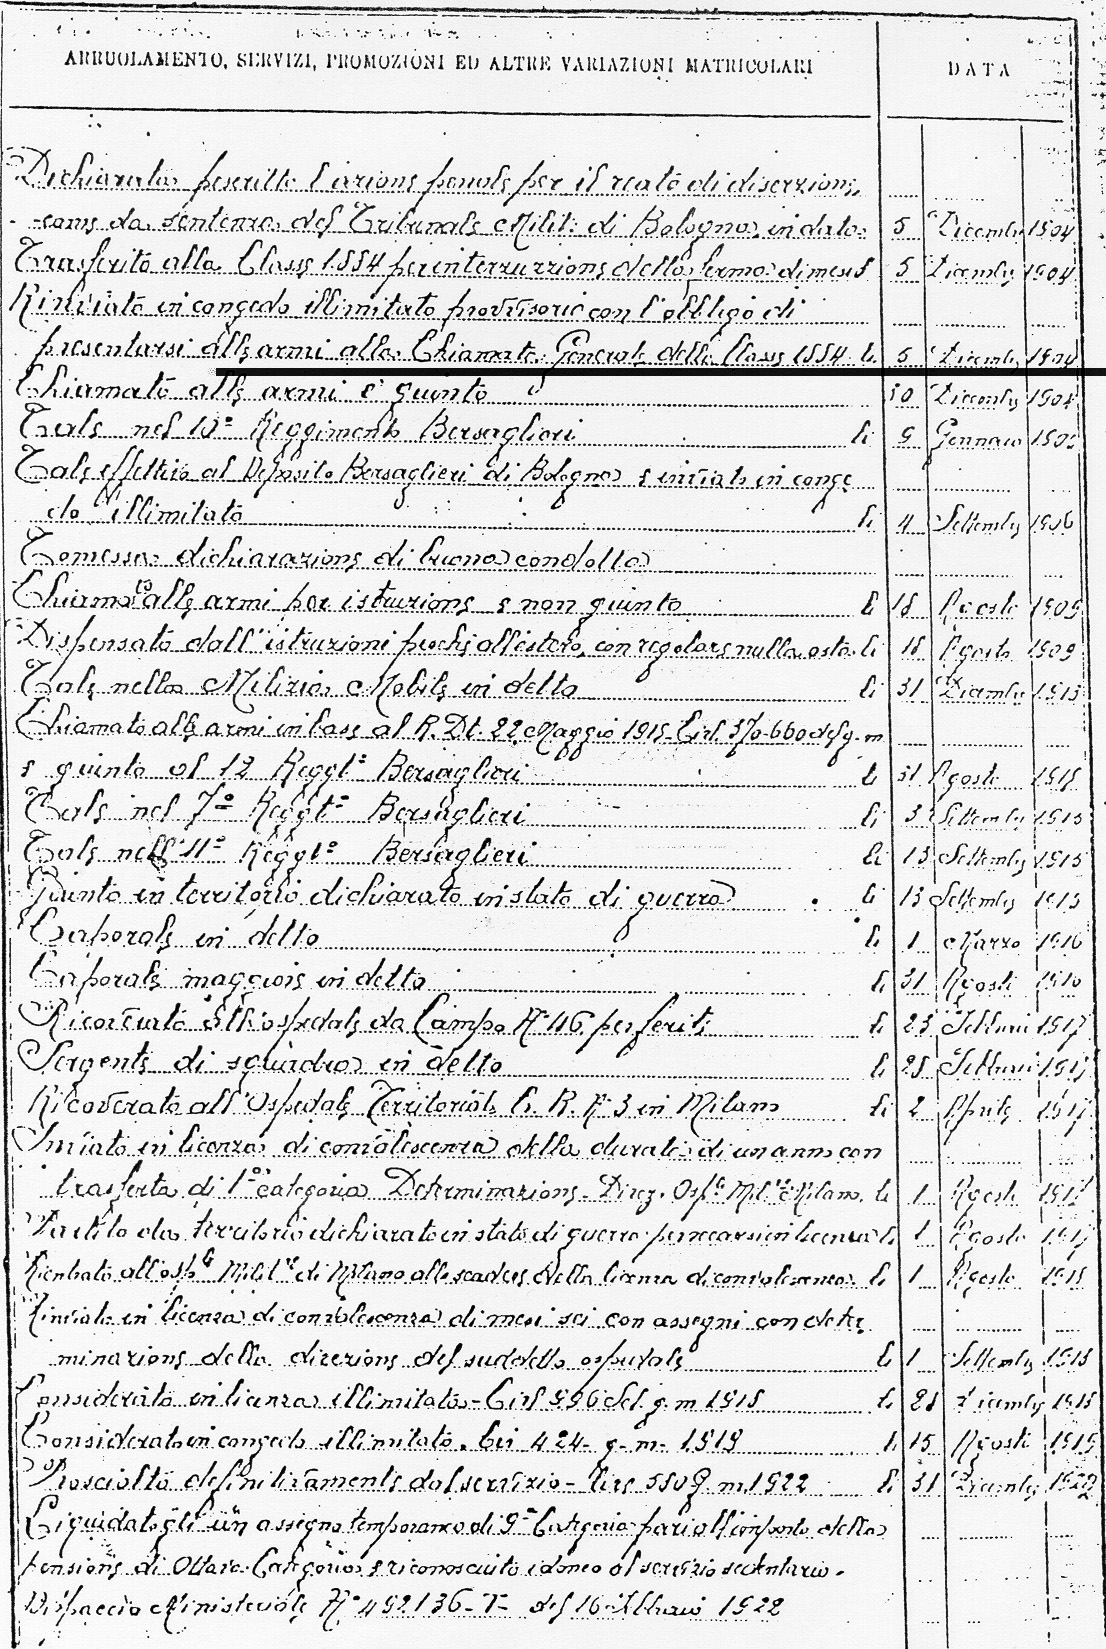 ARRUOLAMENTO, SERVIZI, PROMOZIONI ED ALTRE VARIAZIONI MATRICOLARI DATA
Dichiarata prescritta l'azione penale per il reato di diserzione,
come da sentenza del Tribunale Milit: di Bologna in data 5 Dicembre 1904
Trasferito alla Classe 1884 per interruzzione della ferma di mesi 5 Dicembre 1904
Rinviato in congedo illimitato provvisorio con l'obbligo di
presentarsi alle armi alla Chiamata Generale della Classe 1884 li 5 Dicembre 1904
Chiamato alle armi e giunto 30 Dicembre 1904
Tale nel Reggimento Bersaglieri li 9 Gennaio
Tale effettivo al Deposito Bersaglieri di Bologna e inviato in conge
do illimitato li 4 Settembre 1906
Concessa dichiarazione di buona condotta
Chiamato alle armi per istruzione e non giunto li 18 Agosto 1909
Dispensato dall'istruzioni perchè all'estero, con regolare nulla osta li 18 Agosto 1909
Tale nella Milizia Mobile in detta li 31 Dicembre 1913
Chiamato alle armi in base al R. Dt. 22 Maggio 1915 Circ. 370-660 del g. m
e giunto al 12 Reggt° Bersaglieri li 31 Agosto 1915
Tale nel 7° Reggt° Bersaglieri li 3 Settembre 1915
Tale nell'11° Reggt° Bersaglieri li 13 Settembre 1915
Giunto in territorio dichiarato in stato di guerra li 13 Settembre 1915
Caporale in detto li 1 Marzo 1916
Caporale maggiore in detto li 31 Agosto 1916
Ricoverato all'ospedale da Campo N° 46 per ferite li 23 Febbraio 1917
Sergente di squadra in detto li 28 Febbraio 1917
Ricoverato all'Ospedale Territoriale C. R. N° 3 in Milano li 2 Aprile 1917
Inviato in licenza di convalescenza della durata di un anno con
trasferta di 1° categoria Determinazione Direz. Osple Milre Milano li 1 Agosto 1917
Partito da territorio dichiarato in stato di guerra per recarsi in licenza li 1 Agosto 1917
Rientrato all'osple Milre di Milano alla scadere della licenza di convalescenza li 1 Agosto 1918
Rinviato in licenza di convalescenza di mesi sei con assegni con deter
minazione della direzione del suddetto ospedale li 1 Settembre 1918
Considerato in licenza illimitata - Circ 596 del g. m 1918 li 28 Dicembre 1918
Considerato in congedo illimitato. Circ 424 g. m. 1919 li 15 Agosto 1919
Prosciolto definitivamente dal servizio - Circ 550 g. m. 1922 li 31 Dicembre 1922
Liquidatogli un assegno temporaneo di 9ª Categoria pari all'importo della
pensione di Ottava Categoria e riconosciuto idoneo al servizio sedentario.
Dispaccio Ministeriale N° 492136-T- del 16 Febbraio 1922